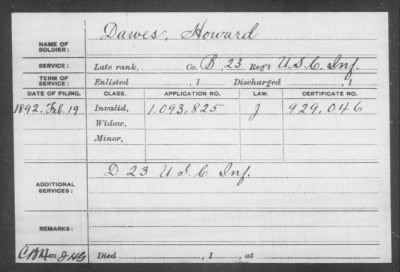 NAME OF SOLDIER: Dawes, Howard
SERVICE: Late rank, Co. B, 23 Reg't U.S.C. Inf.
TERM OF SERVICE: Enlisted , 1 Discharged , 1
DATE OF FILING. CLASS. APPLICATION NO. LAW. CERTIFICATE NO.
1892, Feb. 19 Invalid, 1.093,825 J 929,046
Widow,
Minor,
ADDITIONAL SERVICES: D 23 U.S.C Inf.
REMARKS:
Died , 1 , at